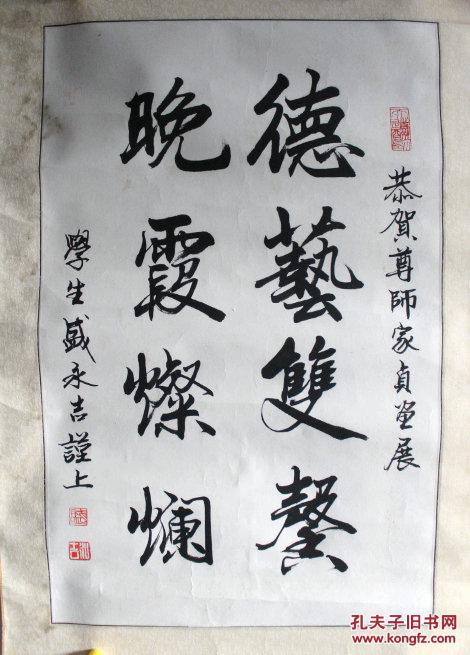 恭賀尊師家貞畫展
德藝雙馨
晚霞燦爛
學生盛永吉謹上
孔夫子旧书网
www.kongfz.com